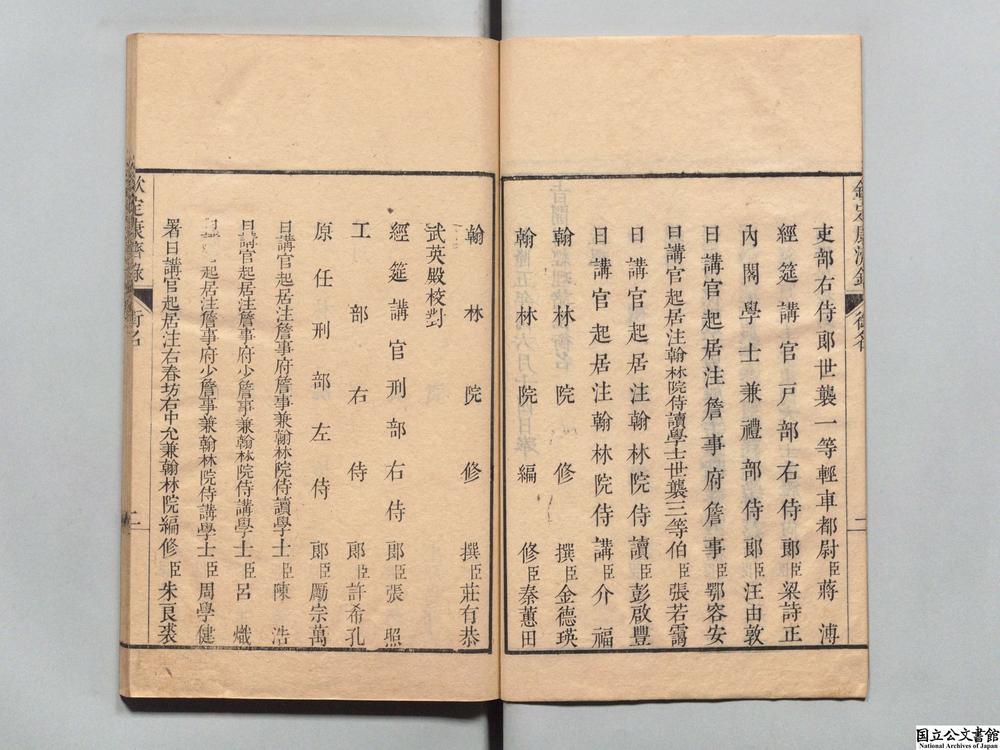 欽定康濟錄 銜名 二
吏部右侍郎世襲一等輕車都尉臣蔣溥
經筵講官戸部右侍郎臣梁詩正
內閣學士兼禮部侍郎臣汪由敦
日講官起居注詹事府詹事臣鄂容安
日講官起居注翰林院侍讀學士世襲三等伯臣張若靄
日講官起居注翰林院侍讀臣彭啟豐
日講官起居注翰林院侍講臣介福
翰林院修撰臣金德瑛
翰林院編修臣秦蕙田
翰林院修撰臣莊有恭
武英殿校對
經筵講官刑部右侍郎臣張照
工部右侍郎臣許希孔
原任刑部左侍郎臣勵宗萬
日講官起居注詹事府詹事兼翰林院侍讀學士臣陳浩
日講官起居注詹事府少詹事兼翰林院侍講學士臣呂熾
起居注詹事府少詹事兼翰林院侍講學士臣周學健
署日講官起居注右春坊右中允兼翰林院編修臣朱良裘
欽定康濟錄 銜名 二
国立公文書館
National Archives of Japan